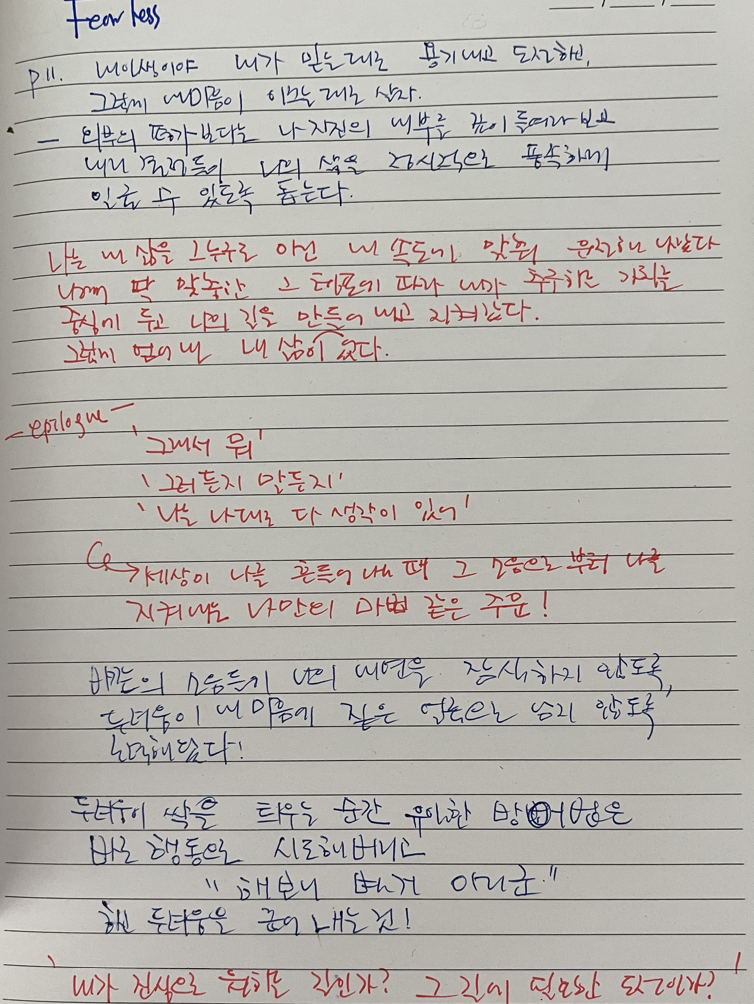 Fearless
P11. 내인생이야 내가 믿는대로 용기내고 도전해.
그렇게 내마음이 이끄는 대로 살자.
— 외부의 평가보다는 나 자신의 내부를 깊이 들여다 보고
나의 삶을 정서적으로 풍족하게
일굴 수 있도록 돕는다.
나는 내 삶을 그누구로 아닌 내 속도에 맞춰 운전해 나갔다
나에게 딱 맞춤한 그 템포에 따라 내가 추구하는 가치를
중심에 두고 나의 길을 만들어 내고 지켜갔다.
그렇게 얻어 낸 내 삶이었다.
-epilogue-
'그래서 뭐'
'그러든지 말든지'
'나는 나대로 다 생각이 있어'
→ 세상이 나를 흔들어 내는 때 그 소음으로 부터 나를
지켜내는 나만의 마법 같은 주문!
바깥의 소음들이 나의 내면을 잠식하지 않도록,
두려움이 내 마음에 짙은 얼룩으로 남지 않도록
노력해왔다!
두려움이 싹을 틔우는 순간 유일한 방어법은
바로 행동으로 시도해버리고
"해보니 별거 아니군."
하고 두려움을 끊어 내는 것!
'내가 진심으로 원하는 길인가? 그 길에 필요한 도구인가?'